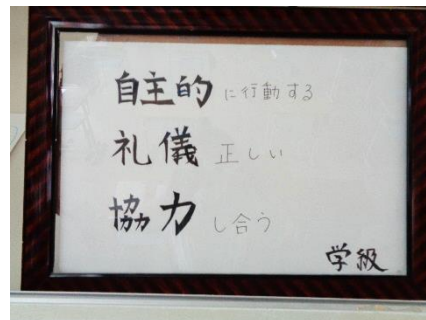 自主的に行動する
礼儀正しい
協力し合う
学級